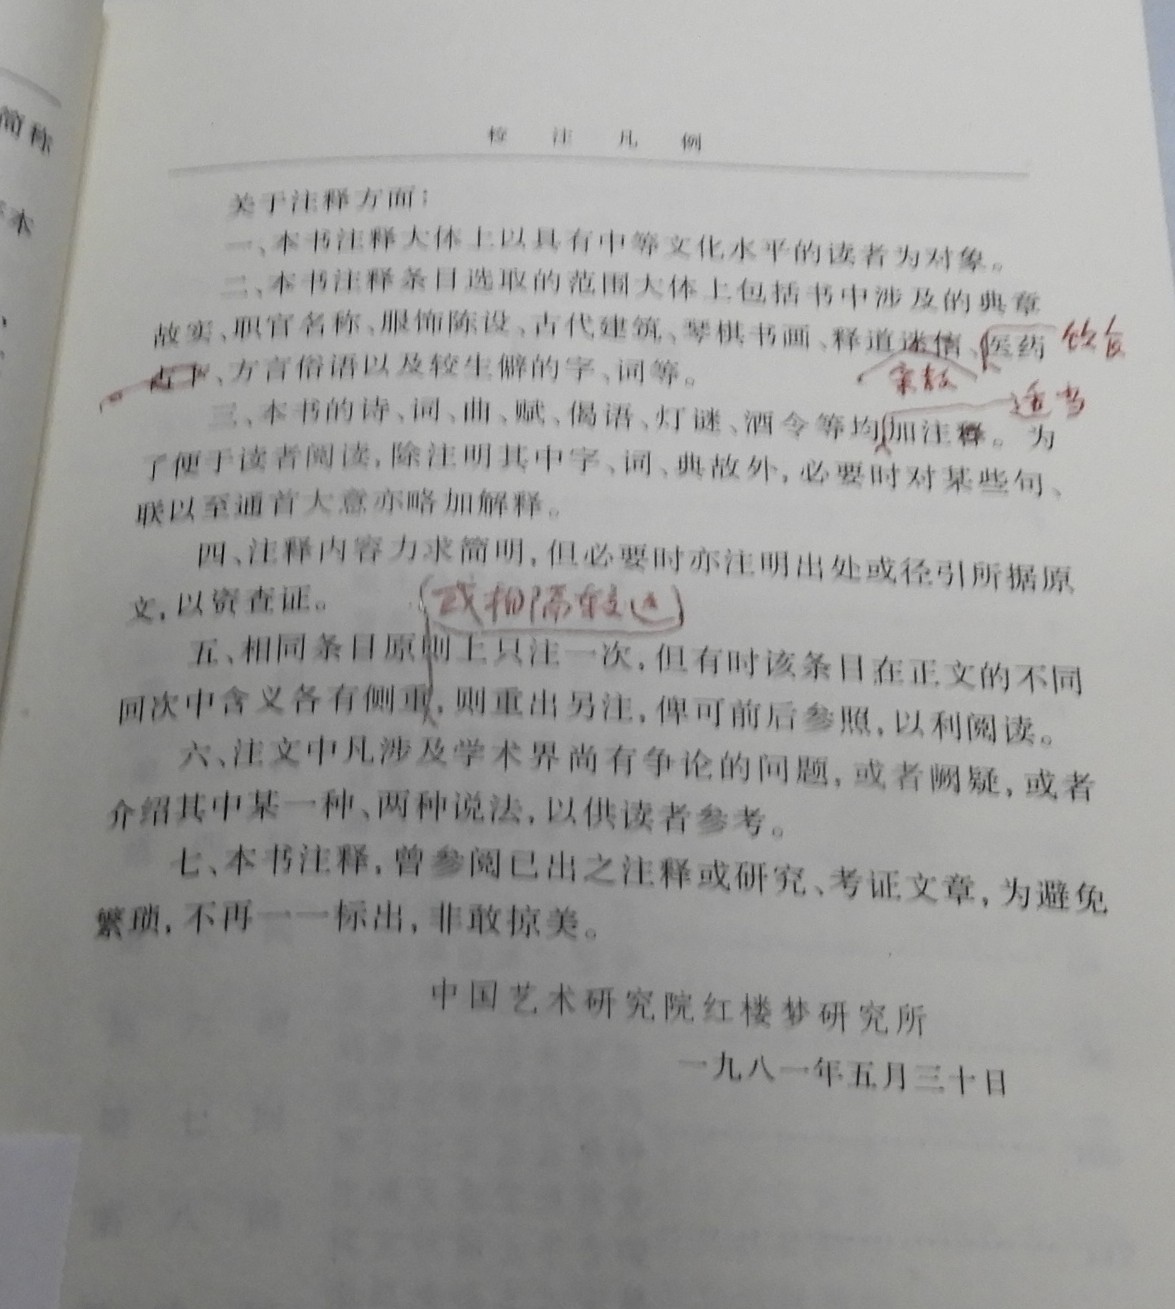 简称
本
校注凡例
关于注释方面：
一、本书注释大体上以具有中等文化水平的读者为对象。
二、本书注释条目选取的范围大体上包括书中涉及的典章
故实、职官名称、服饰陈设、古代建筑、琴棋书画、释道迷信、医药 饮食
占卜、方言俗语以及较生僻的字、词等。
宗教
适当
三、本书的诗、词、曲、赋、偈语、灯谜、酒令等均加注释。为
了便于读者阅读，除注明其中字、词、典故外，必要时对某些句、
联以至通首大意亦略加解释。
四、注释内容力求简明，但必要时亦注明出处或径引所据原
文，以资查证。
或相隔较远
五、相同条目原则上只注一次，但有时该条目在正文的不同
回次中含义各有侧重，则重出另注，俾可前后参照，以利阅读。
六、注文中凡涉及学术界尚有争论的问题，或者阙疑，或者
介绍其中某一种、两种说法，以供读者参考。
七、本书注释，曾参阅已出之注释或研究、考证文章，为避免
繁琐，不再一一标出，非敢掠美。
中国艺术研究院红楼梦研究所
一九八一年五月三十日